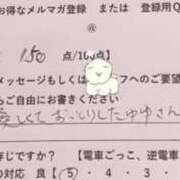 お得なメルマガ登録 または 登録用Q
@
150 点/100点】
メッセージもしくは フへのご要望
らご自由にお書きください
優しくておっとりしたゆゆさん
存じですか? 【電車ごっこ、逆電車
の対応 良【⑤・4・3・